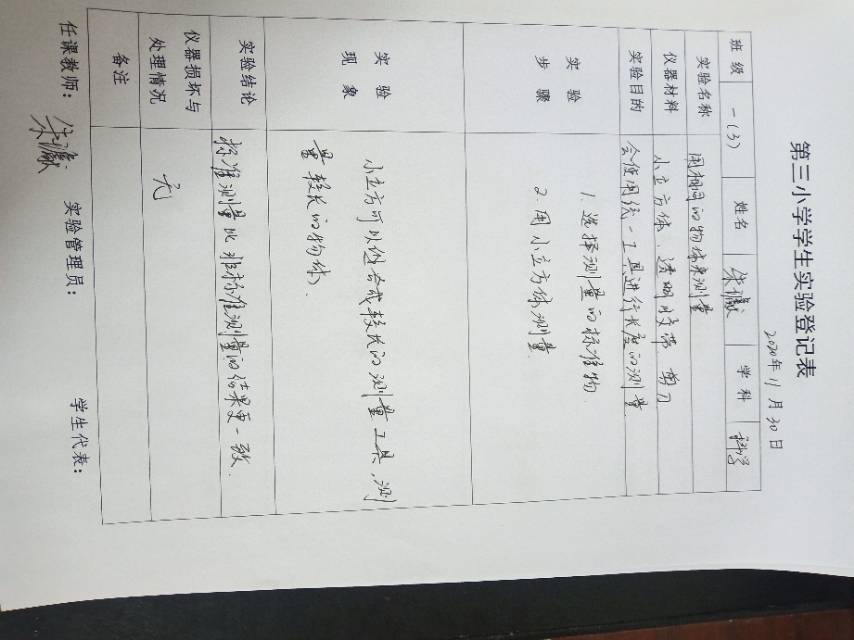 第三小学学生实验登记表
2020年11月30日
班级 一(3) 姓名 朱 学科 科学
实验名称 用相同的物体来测量
仪器材料 小立方体、透明胶带 剪刀
实验目的 会使用统一工具进行长度的测量
实验步骤 1.选择测量的标准物
2.用小立方体测量
实验现象 小立方可以组合成较长的测量工具,测
量较长的物体.
实验结论 标准测量比非标准测量的结果更一致.
仪器损坏与处理情况 无
备注
任课教师: 朱 实验管理员: 学生代表: